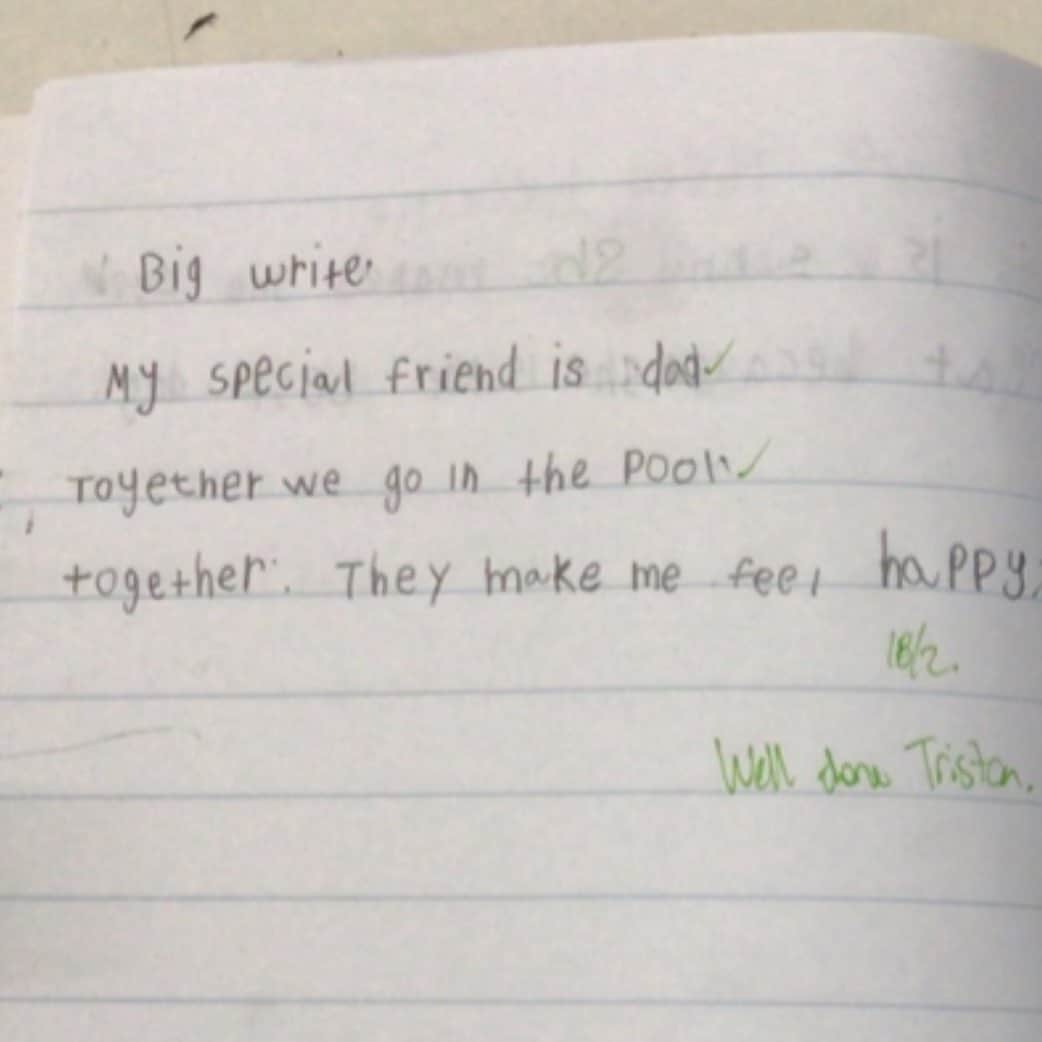 Big write.
My special friend is dad
Together we go in the pool.
together. They make me feel happy.
18/2.
Well done Tristan.